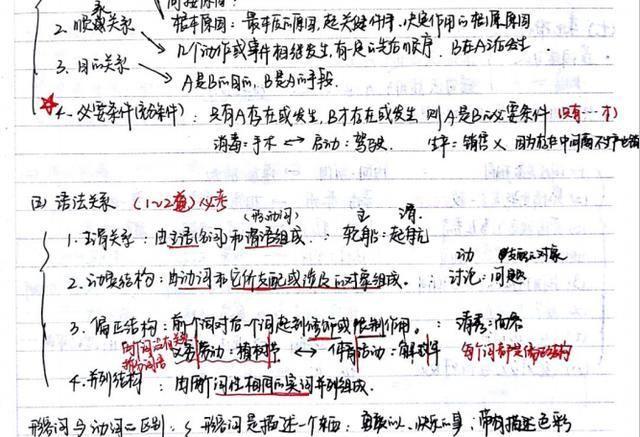 根本原因：最本质的原因，起关键作用、决定作用的根源原因
2. 顺承关系 几个动作或事件相继发生，有一定的先后顺序，B在A之后发生．
3. 目的关系 A是B的目的，B是A的手段．
4. 必要条件 ：只有A存在或发生，B才存在或发生 则A是B的必要条件（只有…才）
消毒：手术 ↔ 启动：驾驶 生产：销售 × 因为存在中间商不生产
(四) 语法关系 （1~2道）必考
（形动词） 主 谓
1. 主谓关系：由主语(名词)和谓语组成．：轮船：起航
动 支配的对象
2. 动宾结构：由动词和它所支配或涉及的对象组成．：讨论：问题
3. 偏正结构：前个词对后一个词起到修饰或限制作用．：清秀：面容
义务劳动：植树节 ↔ 体育活动：解放军 每个词都是偏正结构
4. 并列结构：由两个词性相同的实词并列组成．
形容词与动词的区别：形容词是描述一个东西：勇敢的人、快乐的事，带有描述色彩